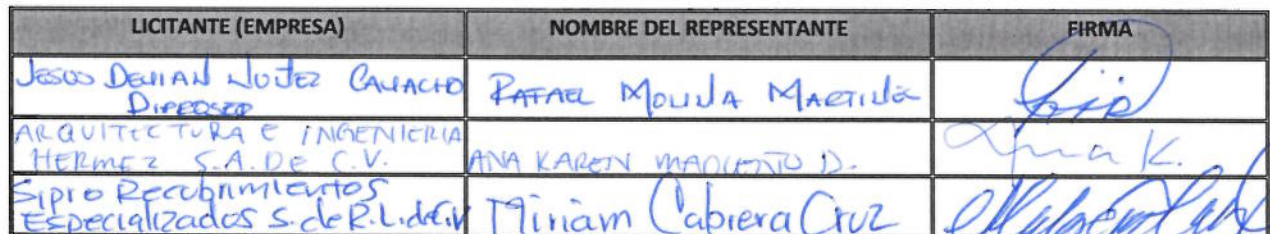 LICITANTE (EMPRESA) NOMBRE DEL REPRESENTANTE FIRMA
JESUS DEMIAN NUÑEZ CAMACHO RAFAEL MOLINA MARTINEZ
ARQUITECTURA E INGENIERIA
HERMEZ S.A. DE C.V. ANA KAREN D. Ana K.
Sipro Recubrimientos
Especializados S. de R.L. de C.V Miriam Cabrera Cruz